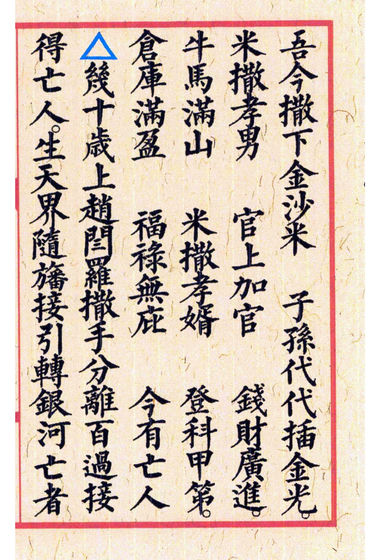 吾今撒下金沙米　子孫代代插金光。
米撒孝男　官上加官　錢財廣進。
牛馬滿山　米撒孝婿　登科甲第。
倉庫滿盈　福祿無庇　今有亡人
△幾十歳上趙閆羅撒手分離百過接
得亡人。生天界隨旛接引轉銀河亡者